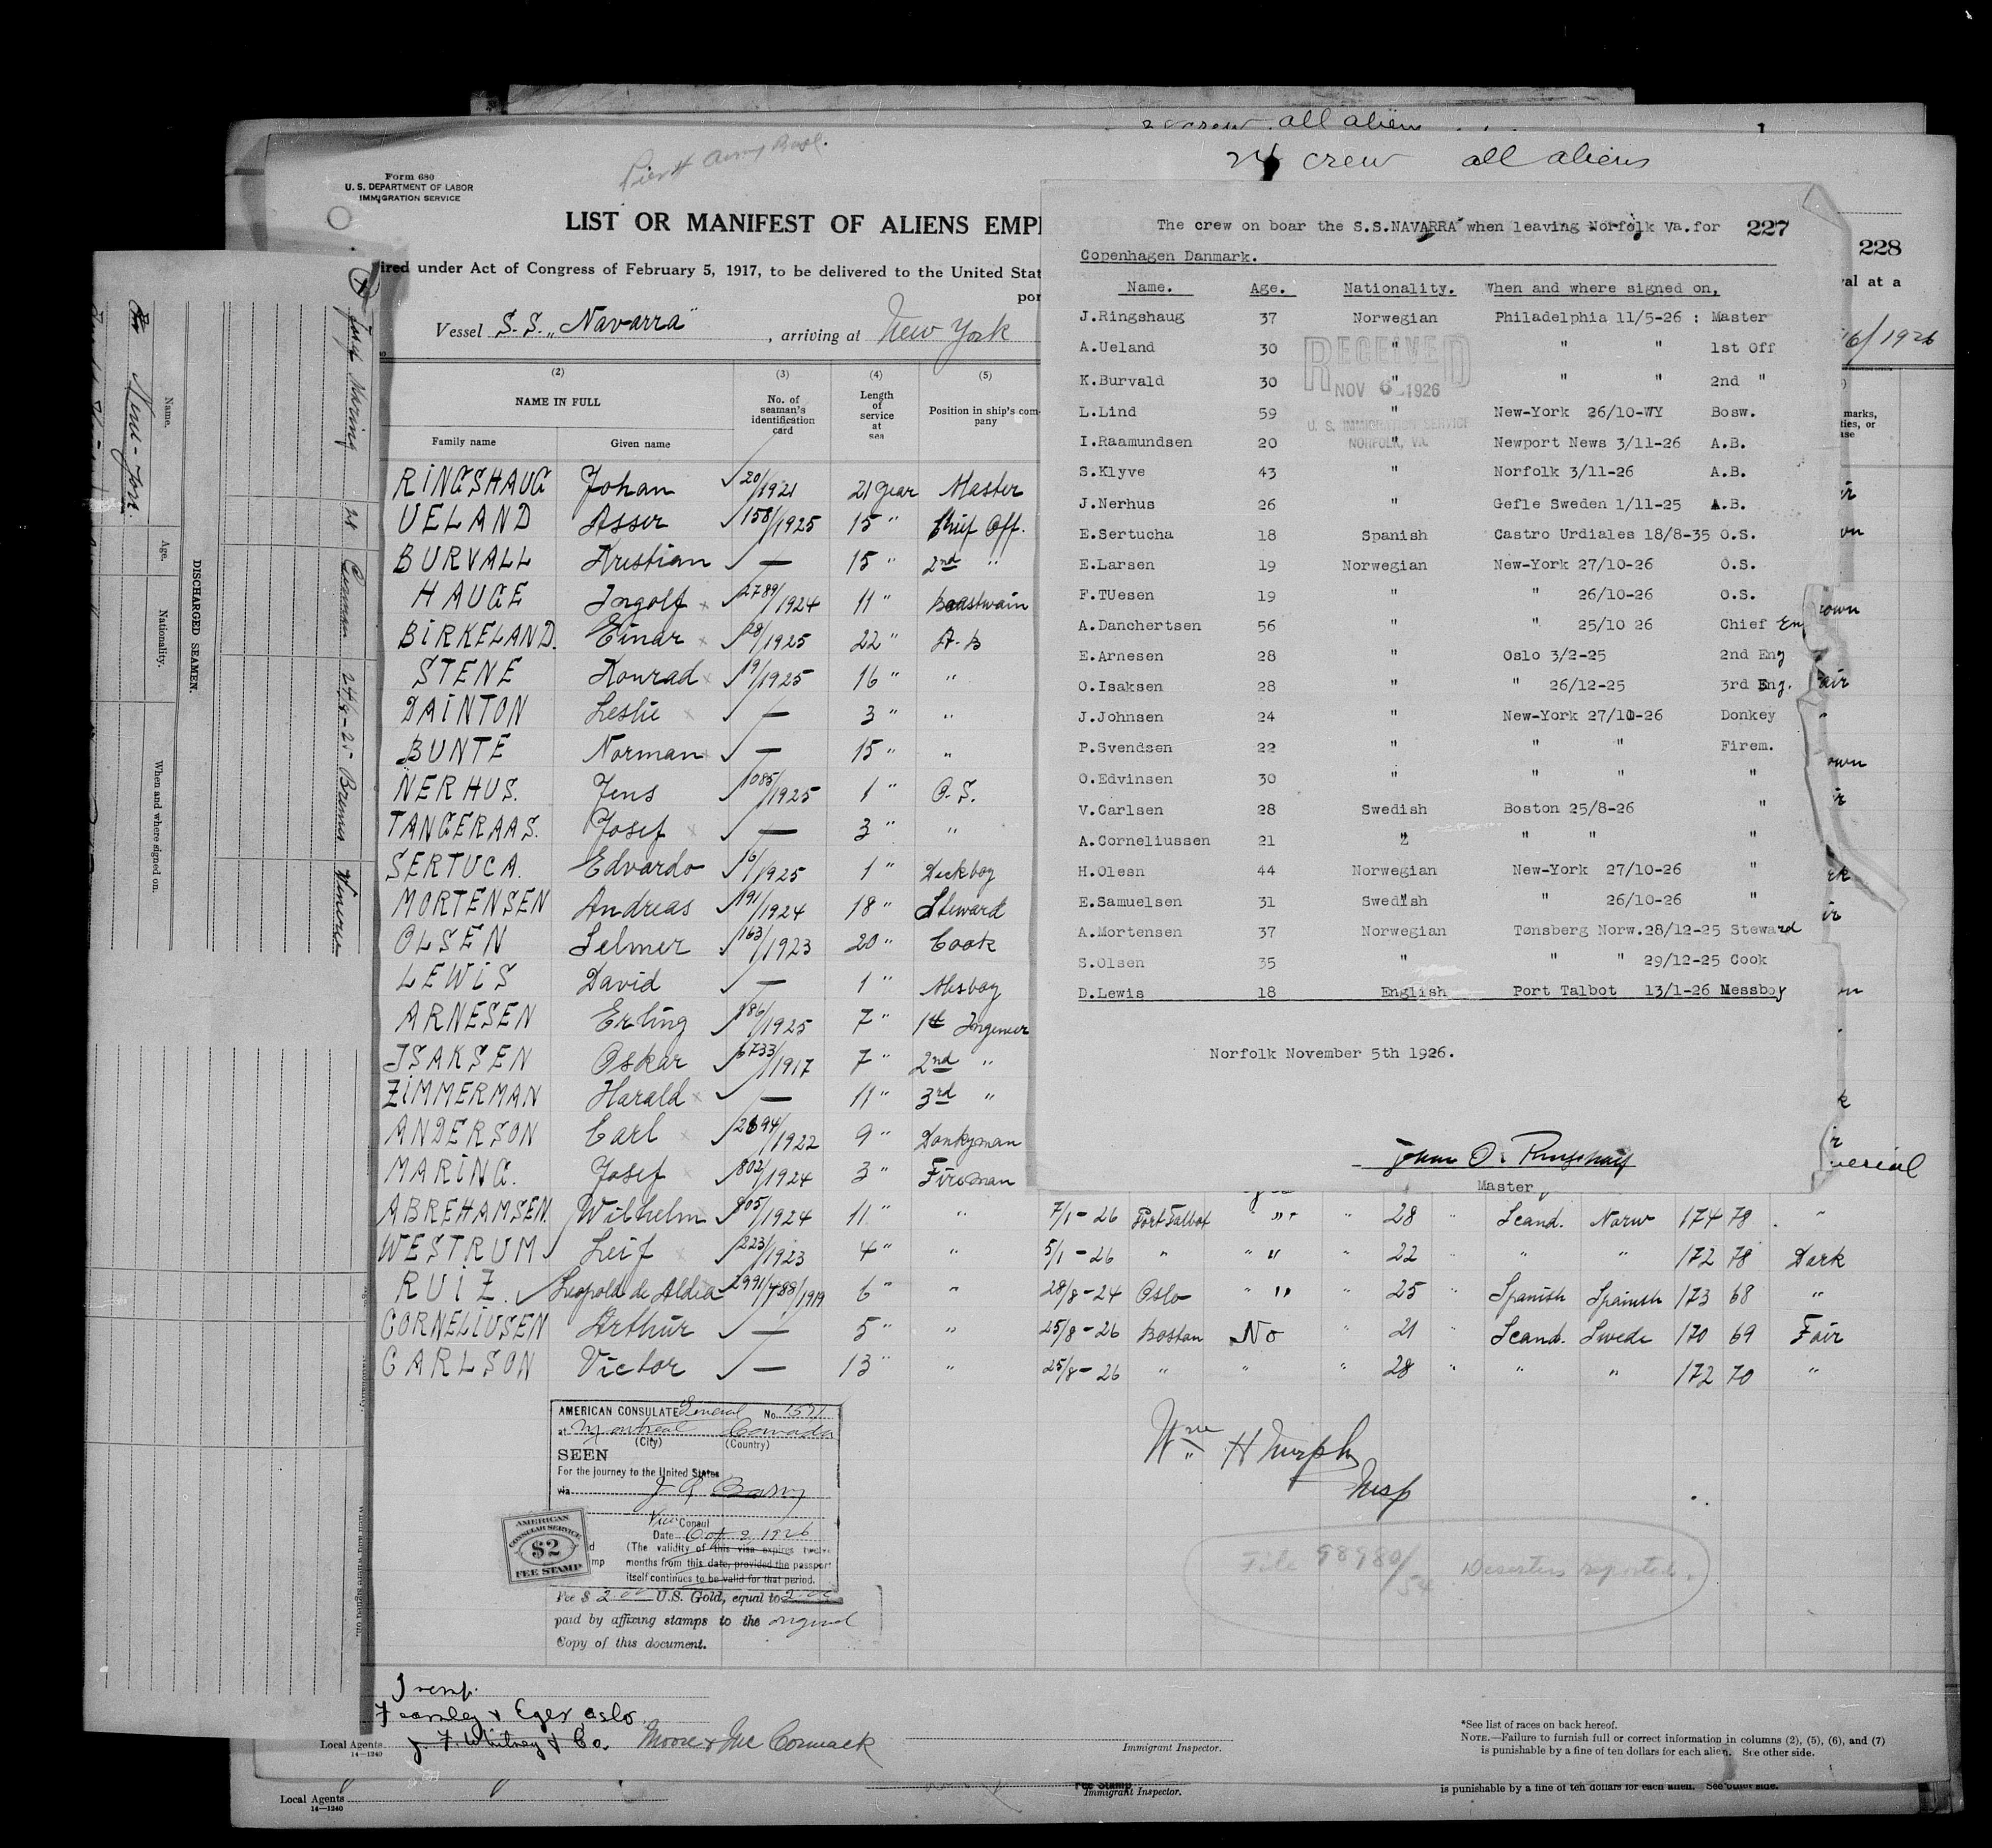 2 crew all aliens
24 crew all aliens
Form 680
U. S. DEPARTMENT OF LABOR
IMMIGRATION SERVICE
LIST OR MANIFEST OF ALIENS EMPL
228
ired under Act of Congress of February 5, 1917, to be delivered to the United Stat
val at a
por
Vessel S.S. „Navarra" , arriving at New York
6/1926
(2) (3) (4) (5)
NAME IN FULL
No. of seaman's identification card
Length of service at sea
Position in ship's company
Family name Given name
RINGSHAUG Johan 20/1921 21 year Master
UELAND Asser 158/1925 15 " Chief Off.
BURVALL Kristian — 15 " 2nd "
HAUGE Ingolf x 2789/1924 11 " Boastwain
BIRKELAND. Einar x 28/1925 22 " A.B
STENE Konrad x 19/1925 16 " "
DAINTON Leslie x — 3 " "
BUNTE Norman x — 15 " "
NERHUS. Jens 1085/1925 1 " O.S.
TANGERAAS. Josef x — 3 " "
SERTUCA. Edvardo 16/1925 1 " Deckboy
MORTENSEN Andreas 191/1924 18 " Steward
OLSEN Selmer 163/1923 20 " Cook
LEWIS David — 1 " Mesboy
ARNESEN Erling 186/1925 7 " 1st Ingeneer
ISAKSEN Oskar 6733/1917 7 " 2nd "
ZIMMERMAN Harald x — 11 " 3rd "
ANDERSON Carl x 2694/1922 9 " Donkyman
MARING. Josef x 802/1924 3 " Fireman
ABREHAMSEN. Wilhelm 905/1924 11 " " 7/1-26 Port Talbot " " " 28 " Scand. Norw 174 78 "
WESTRUM Leif x 223/1923 4 " " 5/1-26 " " " " 22 " " " 172 78 Dark
RUIZ. Leopold de Aldea 2991/488/1919 6 " " 28/8-24 Oslo " " " 25 " Spanish Spanish 173 68 "
CORNELIUSEN Arthur — 5 " " 25/8-26 Boston No " 21 " Scand. Swede 170 69 Fair
CARLSON Victor — 13 " " 25/8-26 " " " 28 " " " 172 70 "
The crew on boar the S.S.NAVARRA" when leaving Norfolk Va.for 227
Copenhagen Danmark.
Name. Age. Nationality. When and where signed on,
J.Ringshaug 37 Norwegian Philadelphia 11/5-26 : Master
A.Ueland 30 " " " 1st Off
K.Burvald 30 " " " 2nd "
L.Lind 59 " New-York 26/10-WY Bosw.
I.Raamundsen 20 " Newport News 3/11-26 A.B.
S.Klyve 43 " Norfolk 3/11-26 A.B.
J.Nerhus 26 " Gefle Sweden 1/11-25 A.B.
E.Sertucha 18 Spanish Castro Urdiales 18/8-35 O.S.
E.Larsen 19 Norwegian New-York 27/10-26 O.S.
F.TUesen 19 " " 26/10-26 O.S.
A.Danchertsen 56 " " 25/10 26 Chief En
E.Arnesen 28 " Oslo 3/2-25 2nd Eng
O.Isaksen 28 " " 26/12-25 3rd Eng.
J.Johnsen 24 " New-York 27/10-26 Donkey
P.Svendsen 22 " " " Firem.
O.Edvinsen 30 " " " "
V.Carlsen 28 Swedish Boston 25/8-26 "
A.Corneliussen 21 " " " "
H.Olesn 44 Norwegian New-York 27/10-26 "
E.Samuelsen 31 Swedish " 26/10-26 "
A.Mortensen 37 Norwegian Tønsberg Norw.28/12-25 Steward
S.Olsen 35 " " " 29/12-25 Cook
D.Lewis 18 English Port Talbot 13/1-26 Messboy
RECEIVED
NOV 6 1926
U. S. IMMIGRATION SERVICE
NORFOLK, VA.
Norfolk November 5th 1926.
Master
AMERICAN CONSULATE General No. 1571
at Montreal Canada
(City) (Country)
SEEN
For the journey to the United States
via
Vice Consul
Date Oct 2 1926
(The validity of this visa expires twelve
months from this date, provided the passport
itself continues to be valid for that period.
AMERICAN
CONSULAR SERVICE
$2
FEE STAMP
Fee $ 2.00 U.S. Gold, equal to 2.00
paid by affixing stamps to the original
Copy of this document.
Wm H Murphy
Insp
File 98980/54 Deserters reported.
Fearnley & Eger Oslo.
J. F. Whitney & Co. Moore & Mc Cormack
Local Agents
14—1240
Immigrant Inspector.
*See list of races on back hereof.
NOTE.—Failure to furnish full or correct information in columns (2), (5), (6), and (7)
is punishable by a fine of ten dollars for each alien. See other side.
Local Agents
14—1240
Fee Stamp
Immigrant Inspector.
is punishable by a fine of ten dollars for each alien. See other side.
DISCHARGED SEAMEN.
Name. Age. Nationality. When and where signed on.
New-York.
Josef Maring 21 German 24/9-25